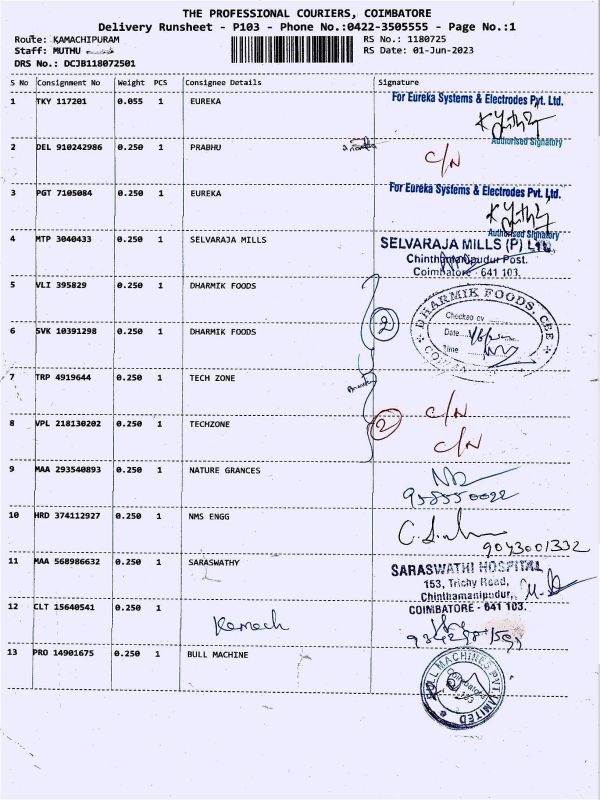 THE PROFESSIONAL COURIERS, COIMBATORE
Delivery Runsheet - P103 - Phone No.:0422-3505555 - Page No.:1
Route: KAMACHIPURAM RS No.: 1180725
Staff: MUTHU RS Date: 01-Jun-2023
DRS No.: DCJB118072501
S No Consignment No Weight PCS Consignee Details Signature
1 TKY 117201 0.055 1 EUREKA For Eureka Systems & Electrodes Pvt. Ltd.
Authorised Signatory
2 DEL 910242986 0.250 1 PRABHU C/N
3 PGT 7105084 0.250 1 EUREKA For Eureka Systems & Electrodes Pvt. Ltd.
Authorised Signatory
4 MTP 3040433 0.250 1 SELVARAJA MILLS SELVARAJA MILLS (P) LTD.
Chinthamanipudur Post.
Coimbatore - 641 103.
5 VLI 395829 0.250 1 DHARMIK FOODS DHARMIK FOODS, CBE
2 Date
Time
6 SVK 10391298 0.250 1 DHARMIK FOODS
7 TRP 4919644 0.250 1 TECH ZONE C/N
8 VPL 218130202 0.250 1 TECHZONE 2 C/N
9 MAA 293540893 0.250 1 NATURE GRANCES
10 HRD 374112927 0.250 1 NMS ENGG
9043001332
11 MAA 568986632 0.250 1 SARASWATHY SARASWATHI HOSPITAL
153, Trichy Road,
Chinthamanipudur,
COIMBATORE - 641 103.
12 CLT 15640541 0.250 1
13 PRO 14901675 0.250 1 BULL MACHINE BULL MACHINES PVT LIMITED